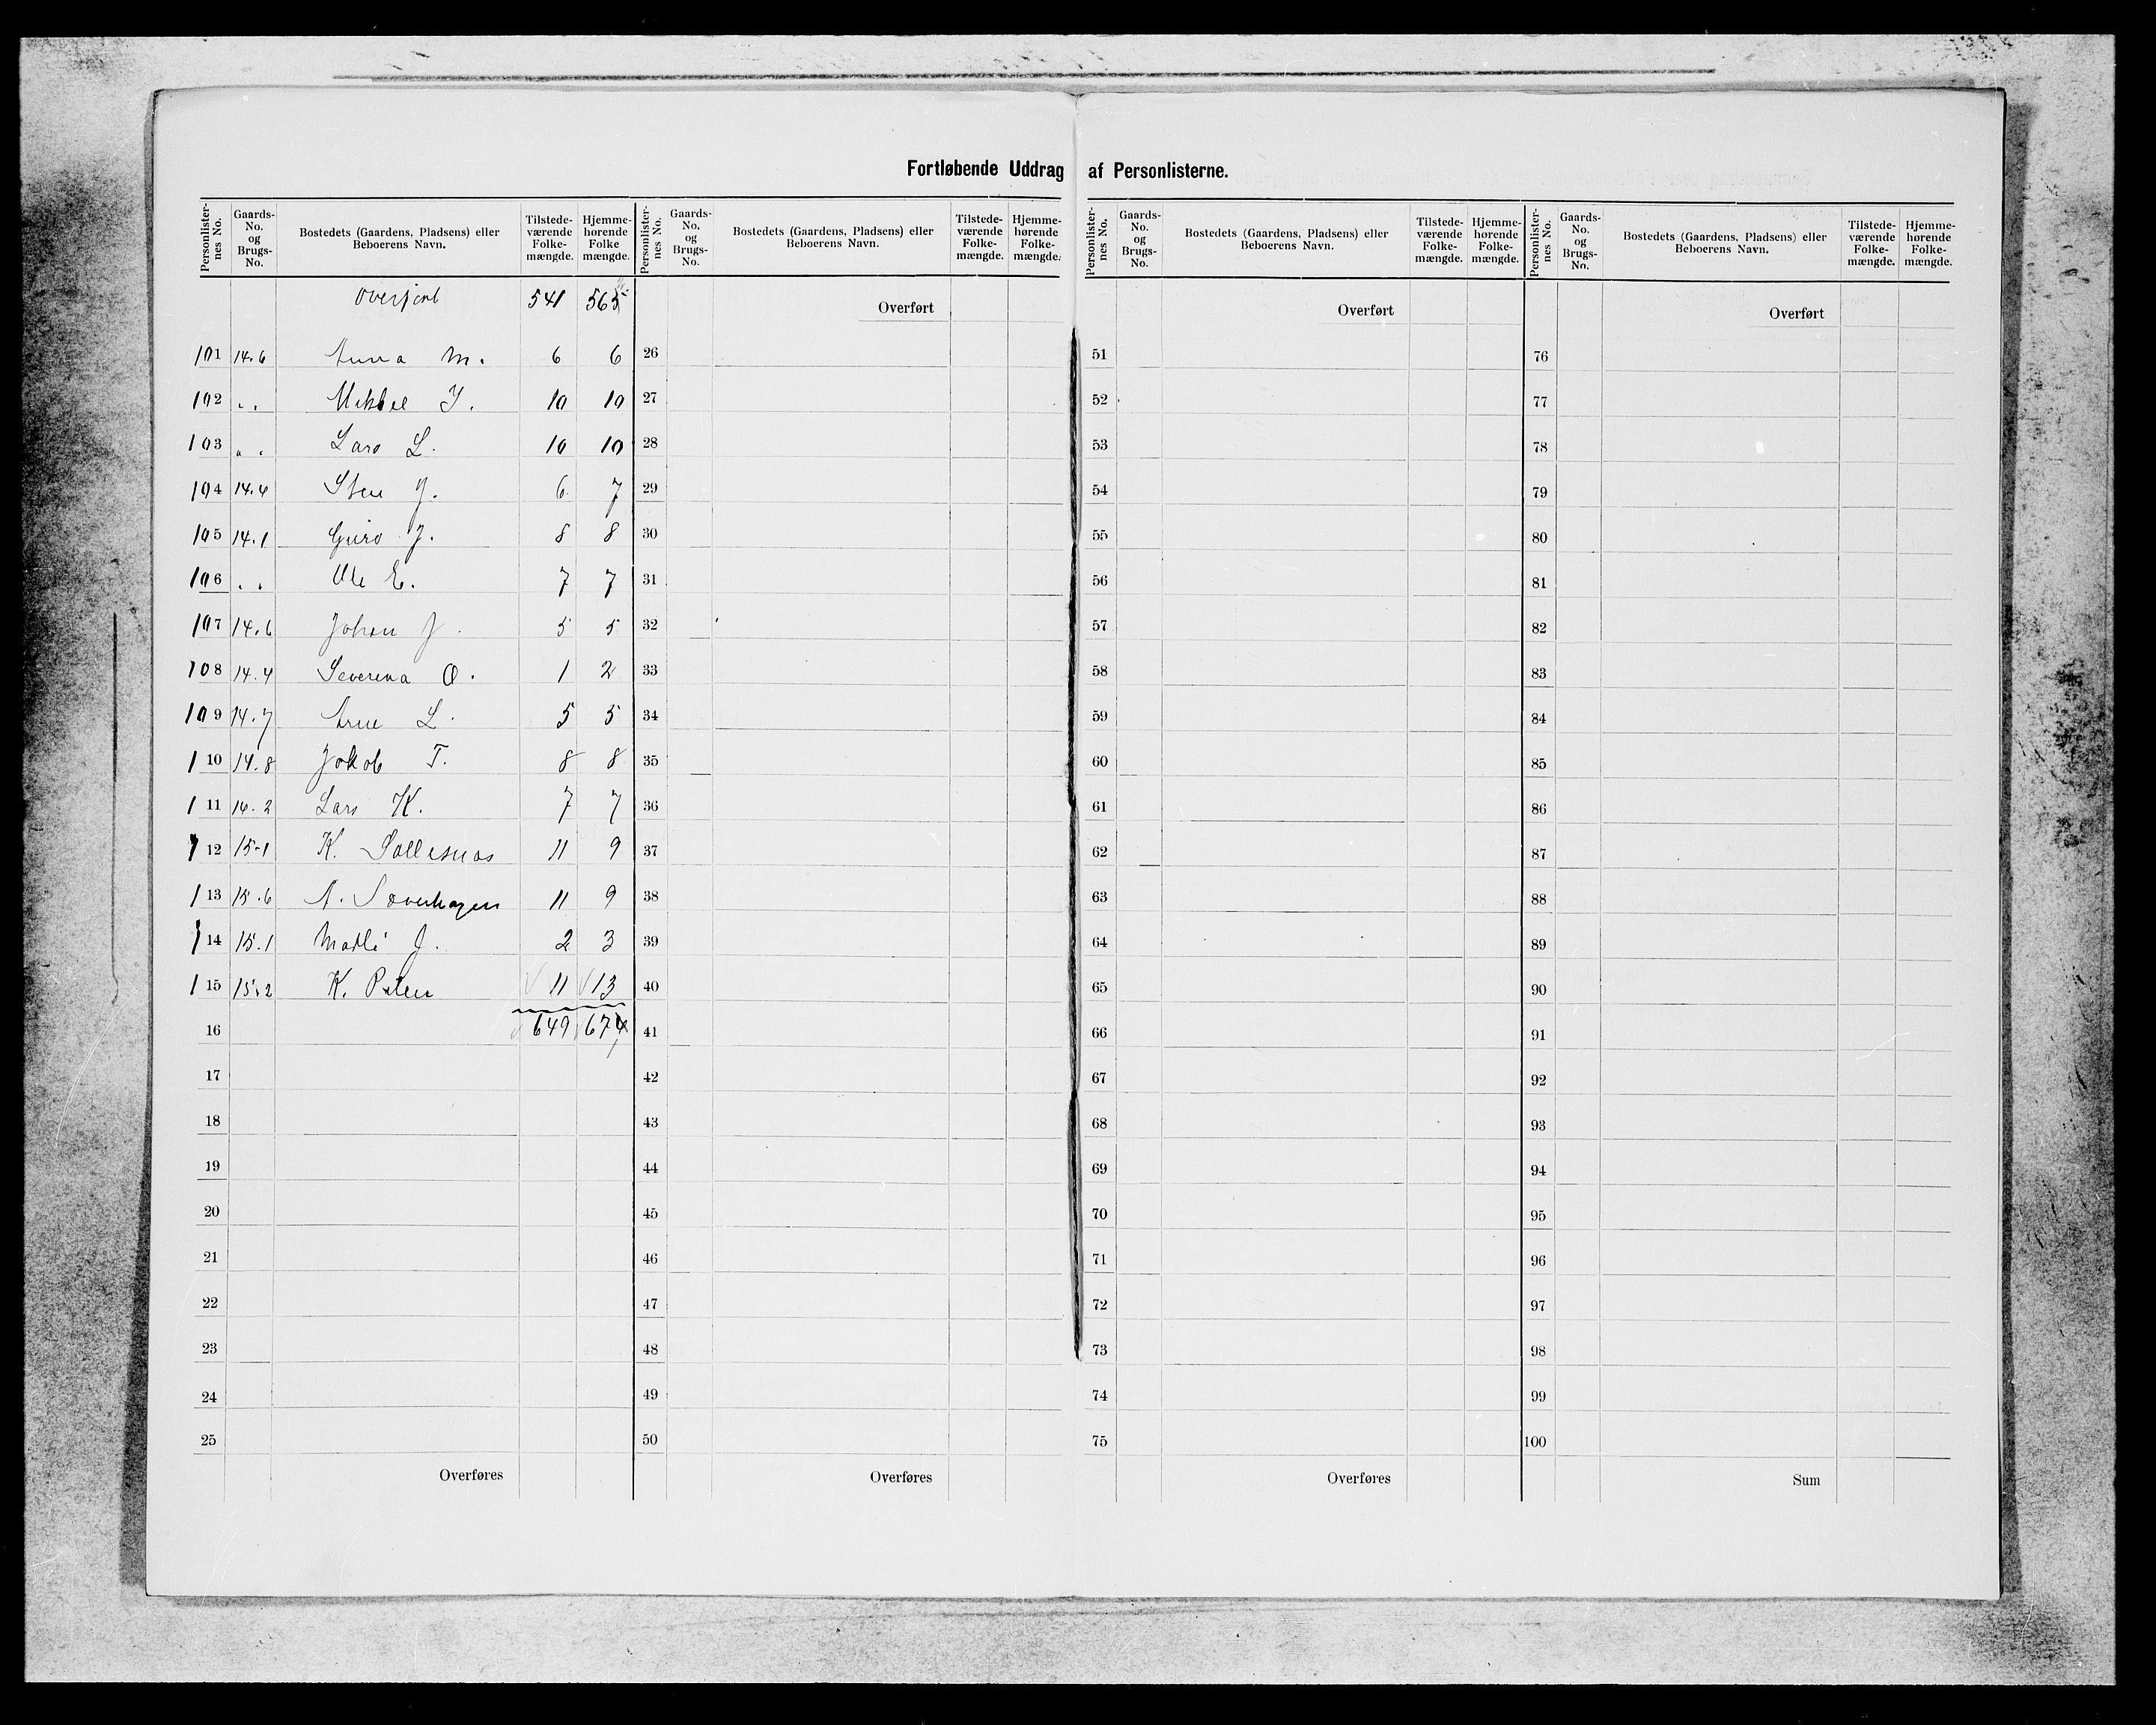 Fortløbende Uddrag af Personlisterne.
Personlister-nes No. Gaards-No. og Brugs-No. Bostedets (Gaardens, Pladsens) eller Beboerens Navn. Tilstede-værende Folke-mængde. Hjemme-hørende Folke mængde. Personlister-nes No. Gaards-No. og Brugs-No. Bostedets (Gaardens, Pladsens) eller Beboerens Navn. Tilstede-værende Folke-mængde. Hjemme-hørende Folke-mængde. Personlister-nes No. Gaards-No. og Brugs-No. Bostedets (Gaardens, Pladsens) eller Beboerens Navn. Tilstede-værende Folke-mængde. Hjemme-hørende Folke-mængde. Personlister-nes No. Gaards-No. og Brugs-No. Bostedets (Gaardens, Pladsens) eller Beboerens Navn. Tilstede-værende Folke-mængde. Hjemme-hørende Folke-mængde.
Overført 541 565 Overført Overført Overført
101 14.6 Anna M. 6 6 26 51 76
102 " " Mikkel J. 10 10 27 52 77
103 " " Lars L. 10 10 28 53 78
104 14.4 Sten J. 6 7 29 54 79
105 14.1 Guro J. 8 8 30 55 80
106 " " Ole E. 7 7 31 56 81
107 14.6 Johan J. 5 5 32 57 82
108 14.4 Severina O. 1 2 33 58 83
109 14.7 Arne L. 5 5 34 59 84
110 14.8 Jakob T. 8 8 35 60 85
111 14.2 Lars K. 7 7 36 61 86
112 15.1 K. 11 9 37 62 87
113 15.6 A. 11 9 38 63 88
114 15.1 J. 2 3 39 64 89
115 15.2 K. 11 13 40 65 90
16 649 674 41 66 91
17 42 67 92
18 43 68 93
19 44 69 94
20 45 70 95
21 46 71 96
22 47 72 97
23 48 73 98
24 49 74 99
25 50 75 100
Overføres Overføres Overføres Sum